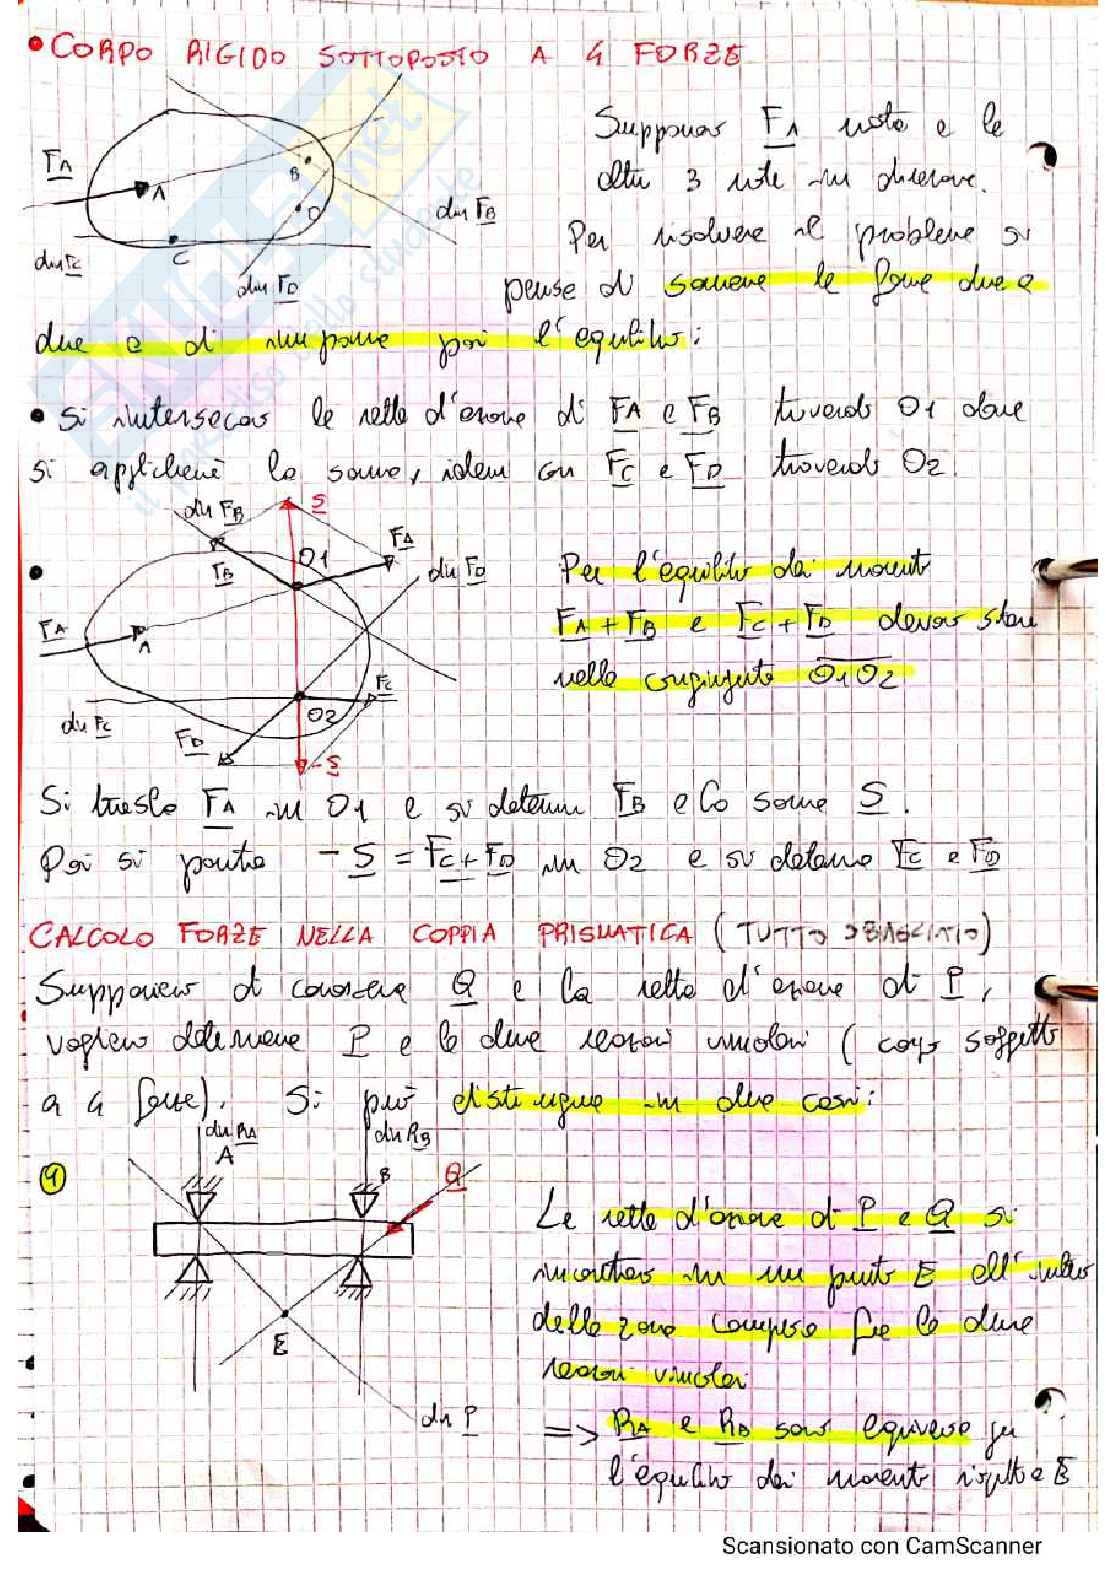 • CORPO RIGIDO SOTTOPOSTO A 4 FORZE
Supponiamo FA nota e le
altre 3 note in direzione.
Per risolvere il problema si
pensa di sommare le forze due a
due e di imporre poi l'equilibrio:
FA
A
B
D
C
dir FB
dir FC
dir FD
• Si intersecano le rette d'azione di FA e FB trovando O1 dove
si applicherà la somma, idem con FC e FD trovando O2.
dir FB
S
FA
O1
FB
dir FD
FA
A
FC
dir FC
O2
FD
-S
• Per l'equilibrio dei momenti
FA + FB e FC + FD devono stare
nella congiungente O1O2
Si trasla FA in O1 e si determina FB e la somma S.
Poi si porta -S = FC + FD in O2 e si determina FC e FD
CALCOLO FORZE NELLA COPPIA PRISMATICA (TUTTO
Supponiamo di conoscere Q e la retta d'azione di P,
vogliamo determinare P e le due reazioni vincolari (corpo soggetto
a 4 forze). Si può distinguere in due casi:
dir RA
A
dir RB
B
Q
E
dir P
1
Le rette d'azione di P e Q si
incontrano in un punto E all'interno
della zona compresa fra le due
reazioni vincolari
=> RA e RB sono equiverse per
l'equilibrio dei momenti rispetto a E
Scansionato con CamScanner